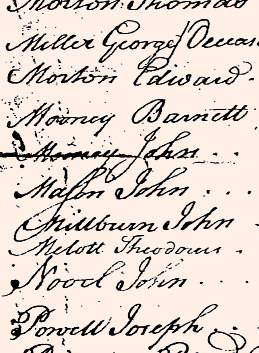 Morton Thomas
Miller George
Morton Edward
Mooney Barnett
John
Mason John
Millburn John
Melott Theodorus
Noel John
Powell Joseph